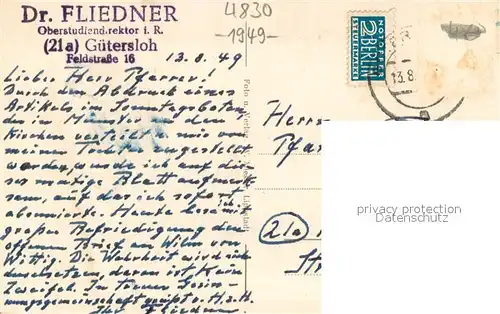 Dr. FLIEDNER
Oberstudiendirektor i. R.
(21a) Gütersloh
Feldstraße 16
4830
-1949-
13.8.49
Lieber Herr Pfarrer!
Durch den Abdruck eines
Artikels im Sonntagsboten,
der in Münster in den
Kirchen verteilt mir von
meiner Nichte zugestellt
werden, wurde ich auf die-
ses mutige Blatt aufmerk-
sam, auf das ich sofort
abonnierte. Heute lese ich mit
großer Befriedigung den
offenen Brief an Wilm von
Wittig. Die Wahrheit wird sich
durchsetzen, daran ist kein
Zweifel. In treuer Gesin-
nungsgemeinschaft
Ihr Fliedner
Foto u. Verlag
NOTOPFER
2 BERLIN
STEUERMARKE
13.8
Herrn
Pfar
(21a)
Str
privacy protection
Datenschutz